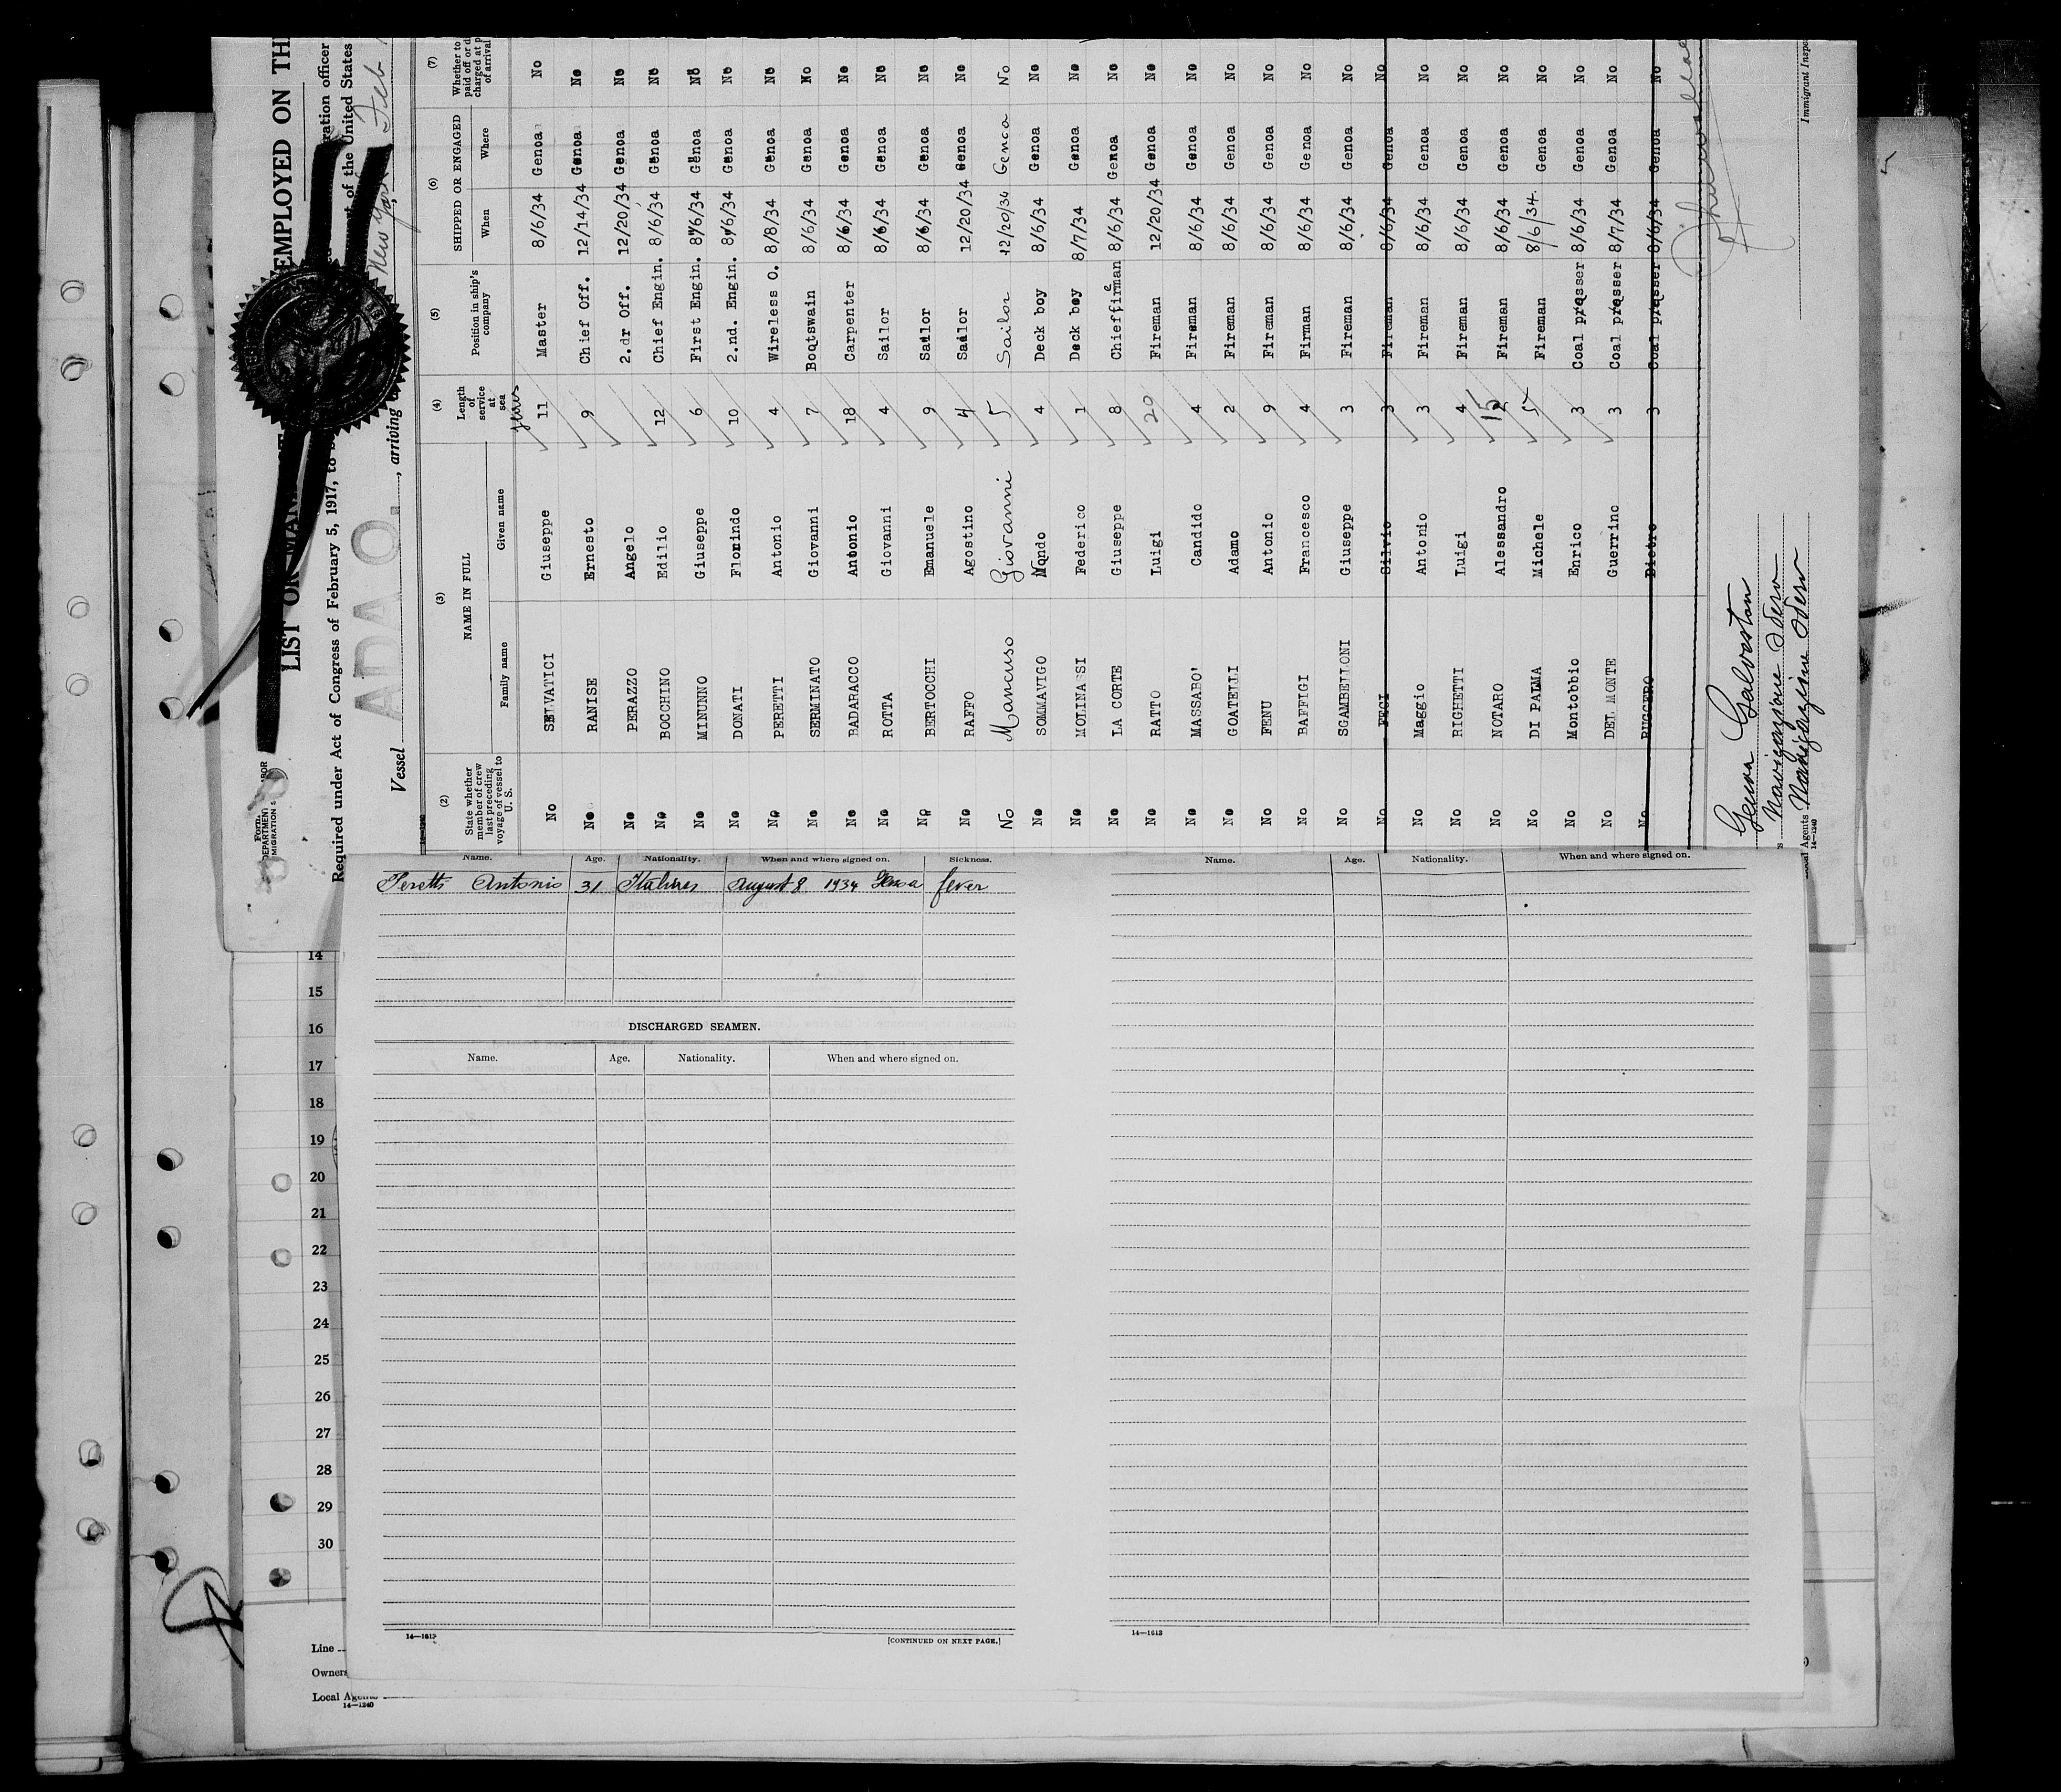 LIST OR MAN EMPLOYED ON TH
Required under Act of Congress of February 5, 1917, to ration officer
rt of the United States
Form
DEPARTMENT LABOR
MIGRATION
Vessel ADA O. , arriving New York Feb
(2) (3) (4) (5) (6) (7)
State whether member of crew last preceding voyage of vessel to U. S. NAME IN FULL Length of service at sea Position in ship's company SHIPPED OR ENGAGED Whether to paid off or d charged at p of arrival
Family name Given name When Where
years
No SELVATICI Giuseppe 11 Master 8/6/34 Genoa No
No RANISE Ernesto 9 Chief Off. 12/14/34 Genoa No
No PERAZZO Angelo 2.dr Off. 12/20/34 Genoa No
No BOCCHINO Edilio 12 Chief Engin. 8/6/34 Genoa No
No MINUNNO Giuseppe 6 First Engin. 8/6/34 Genoa No
No DONATI Flomindo 10 2.nd. Engin. 8/6/34 Genoa No
No PERETTI Antonio 4 Wireless O. 8/8/34 Genoa No
No SERMINATO Giovanni 7 Boqtswain 8/6/34 Genoa No
No BADARACCO Antonio 18 Carpenter 8/6/34 Genoa No
No ROTTA Giovanni 4 Sailor 8/6/34 Genoa No
No BERTOCCHI Emanuele 9 Sailor 8/6/34 Genoa No
No RAFFO Agostino 4 Sailor 12/20/34 Genoa No
No Mancuso Giovanni 5 Sailor 12/20/34 Genoa No
No SOMMAVIGO Nando 4 Deck boy 8/6/34 Genoa No
No MOLINASSI Federico 1 Deck boy 8/7/34 Genoa No
No LA CORTE Giuseppe 8 Chieffireman 8/6/34 Genoa No
No RATTO Luigi 20 Fireman 12/20/34 Genoa No
No MASSABO' Candido 4 Fireman 8/6/34 Genoa No
No GOATELLI Adamo 2 Fireman 8/6/34 Genoa No
No FENU Antonio 9 Fireman 8/6/34 Genoa No
No BAFFIGI Francesco 4 Firman 8/6/34 Genoa No
No SGAMBELLONI Giuseppe 3 Fireman 8/6/34 Genoa No
No FECI Silvio 3 Fireman 8/6/34 Genoa No
No Maggio Antonio 3 Fireman 8/6/34 Genoa No
No RIGHETTI Luigi 4 Fireman 8/6/34 Genoa No
No NOTARO Alessandro 15 Fireman 8/6/34 Genoa No
No DI PALMA Michele 5 Fireman 8/6/34. Genoa No
No Montobbio Enrico 3 Coal passer 8/6/34 Genoa No
No DEL MONTE Guerrino 3 Coal passer 8/7/34 Genoa No
No RUGGERO Pietro 3 Coal passer 8/6/34 Genoa No
Genoa Galveston
Navigazione Odero
Local Agents Navigazione Odero
14—1240
Immigrant Inspe
Name. Age. Nationality. When and where signed on. Sickness.
Peretti Antonio 31 Italian August 8 1934 Genoa fever
DISCHARGED SEAMEN.
Name. Age. Nationality. When and where signed on.
14—1613
[CONTINUED ON NEXT PAGE.]
Name. Age. Nationality. When and where signed on.
14—1613
14
15
16
17
18
19
20
21
22
23
24
25
26
27
28
29
30
Line
Owners
Local Agents
14—1240